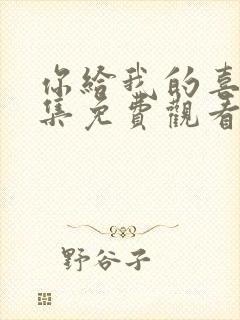 你給我的喜
集免費觀看
野谷子